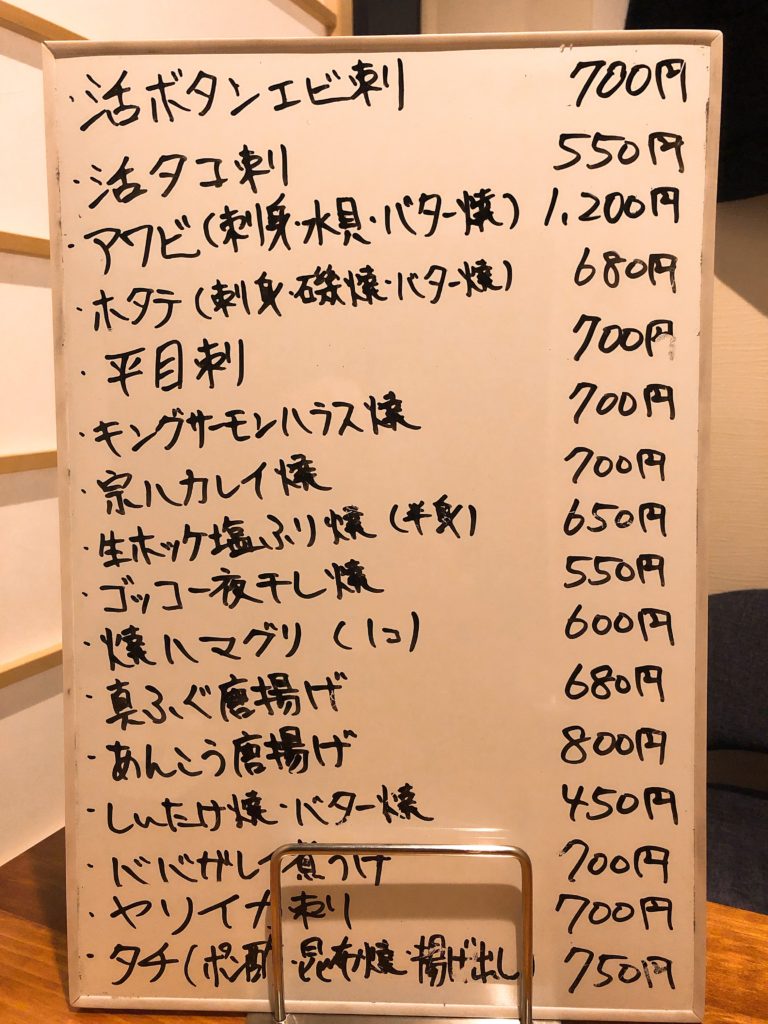 ・活ボタンエビ刺 700円
・活タコ刺 550円
・アワビ(刺身・水貝・バター焼) 1,200円
・ホタテ(刺身・磯焼・バター焼) 680円
・平目刺 700円
・キングサーモンハラス焼 700円
・宗ハカレイ焼 700円
・生ホッケ塩ふり焼(半身) 650円
・ゴッコ一夜干し焼 550円
・焼ハマグリ(1コ) 600円
・真ふぐ唐揚げ 680円
・あんこう唐揚げ 800円
・しいたけ焼・バター焼 450円
・ババガレイ煮つけ 700円
・ヤリイカ刺 700円
・タチ(ポン酢・昆布焼・揚げ出し) 750円